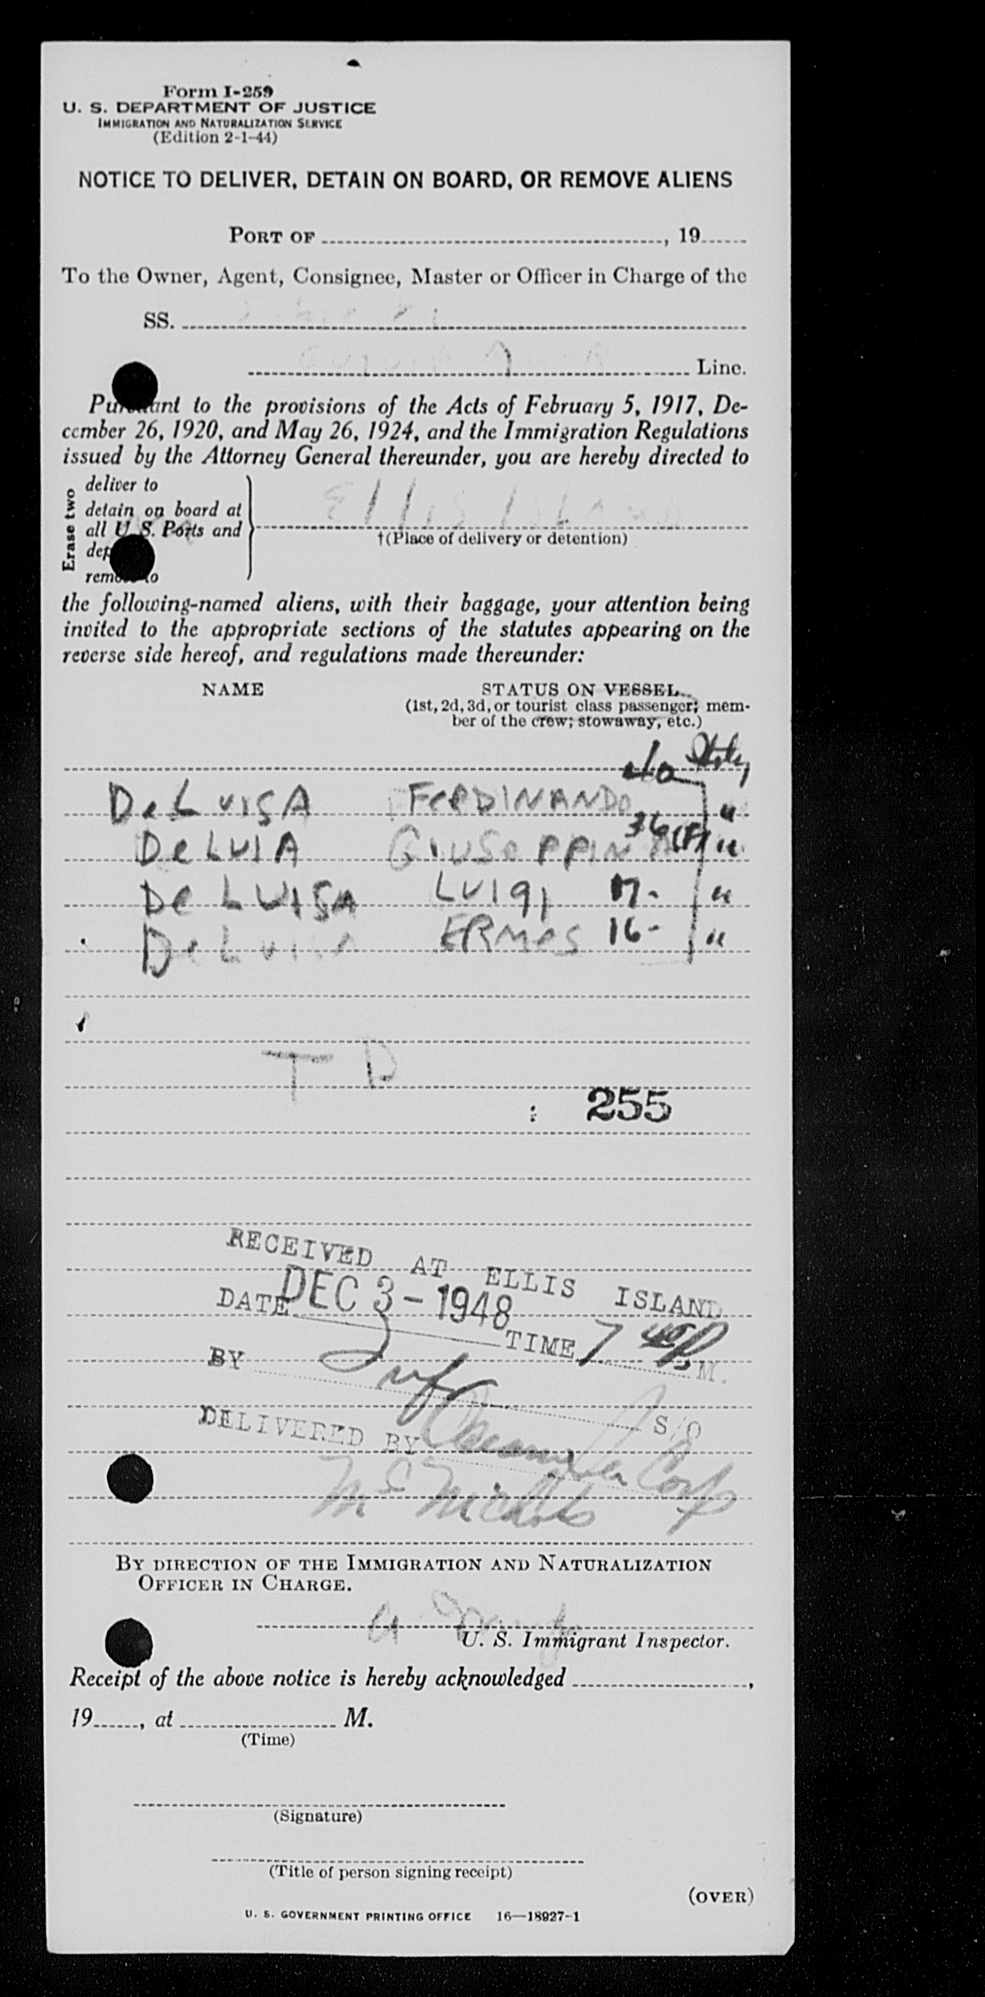 Form I-259
U. S. DEPARTMENT OF JUSTICE
IMMIGRATION AND NATURALIZATION SERVICE
(Edition 2-1-44)
NOTICE TO DELIVER, DETAIN ON BOARD, OR REMOVE ALIENS
PORT OF , 19
To the Owner, Agent, Consignee, Master or Officer in Charge of the
SS.
Line.
Pursuant to the provisions of the Acts of February 5, 1917, De-
cember 26, 1920, and May 26, 1924, and the Immigration Regulations
issued by the Attorney General thereunder, you are hereby directed to
Erase two
deliver to
detain on board at
all U. S. Ports and
remove to
Ellis Island
†(Place of delivery or detention)
the following-named aliens, with their baggage, your attention being
invited to the appropriate sections of the statutes appearing on the
reverse side hereof, and regulations made thereunder:
NAME STATUS ON VESSEL
(1st, 2d, 3d, or tourist class passenger; mem-
ber of the crew; stowaway, etc.)
40 Italy
DeLUISA FeRDINANDO "
DeLUIA GIUSePPINA 36(F) "
De LUISA LUIgI 17- "
DeLuisa ERMes 16- "
T D
255
RECEIVED AT ELLIS ISLAND
DATE DEC 3-1948
TIME 7 45 P M.
BY
S/O
DELIVERED BY
Corp
By direction of the Immigration and Naturalization
Officer in Charge.
U. S. Immigrant Inspector.
Receipt of the above notice is hereby acknowledged ,
19 , at M.
(Time)
(Signature)
(Title of person signing receipt)
(OVER)
U. S. GOVERNMENT PRINTING OFFICE 16—18927-1